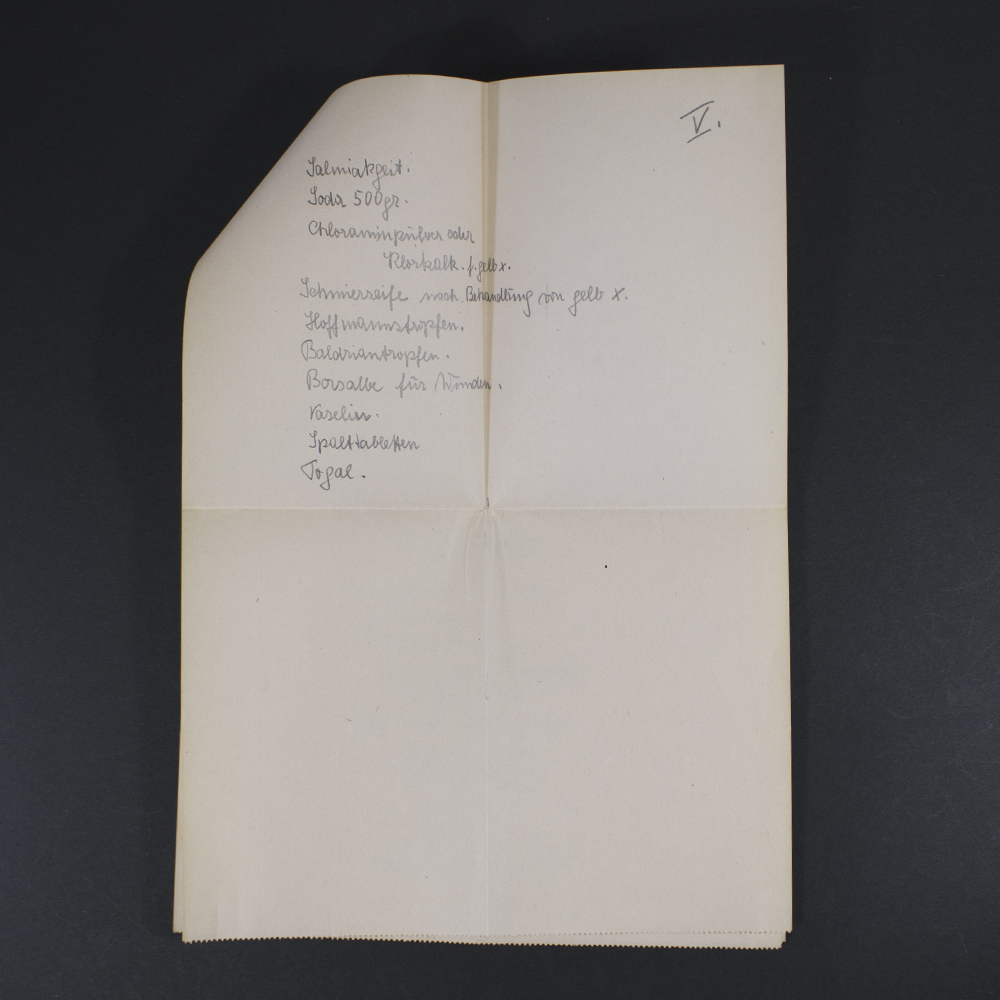 V.
Salmiakgeist.
Soda 500gr.
Chloraminpulver oder
Klorkalk. f. gelb x.
Schmierseife nach Behandlung von gelb X.
Hoffmannstropfen.
Baldriantropfen.
Borsalbe für Wunden.
Vaselin.
Spalttabletten
Togal.